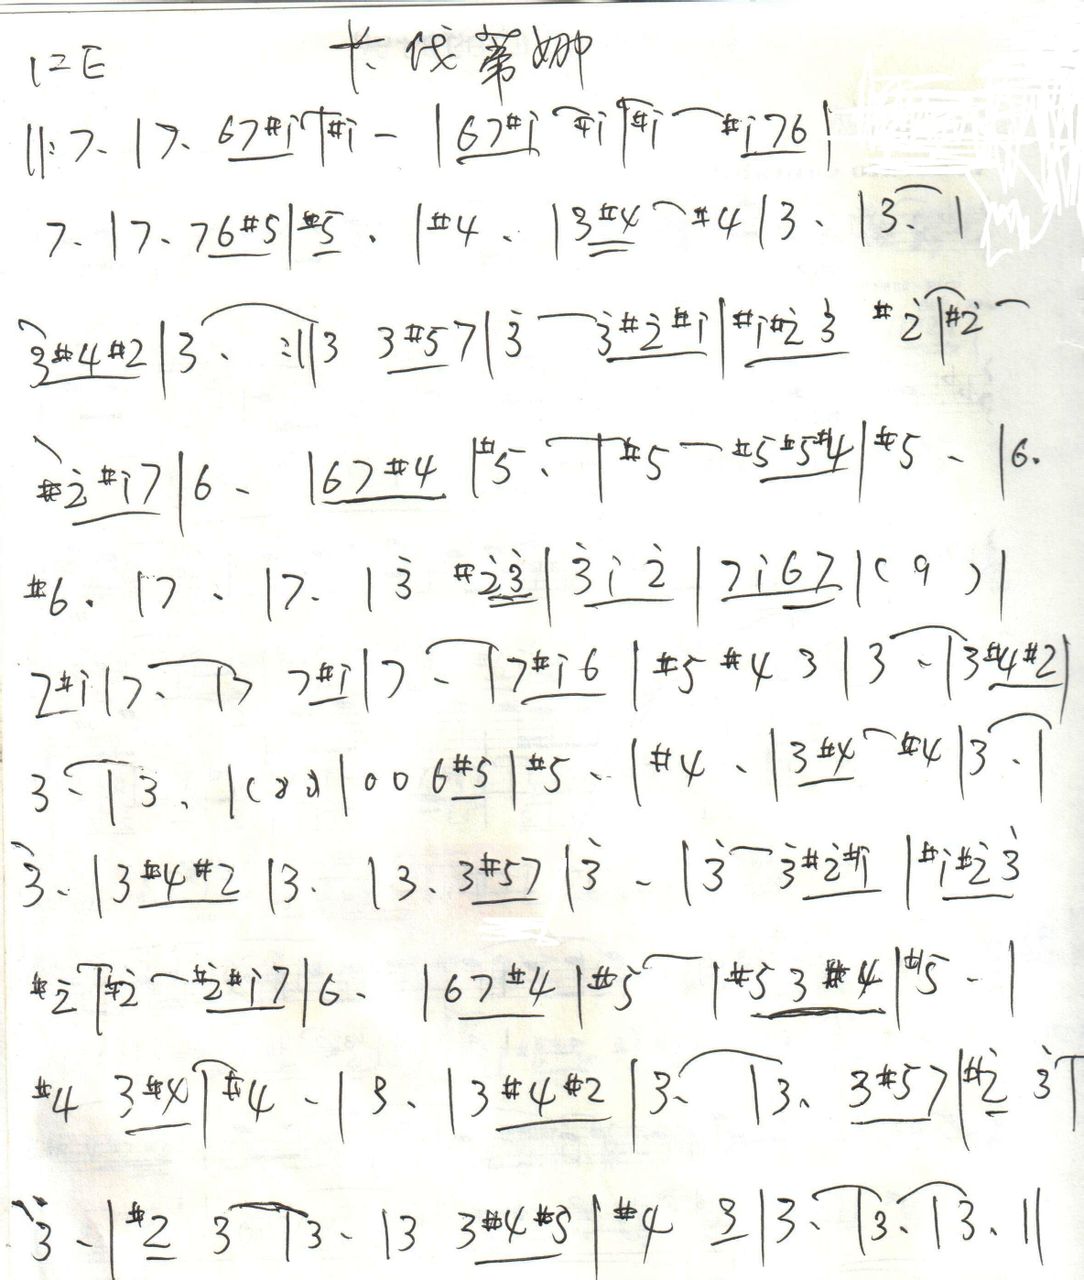 1=E 卡伐蒂娜
||: 7. | 7. 67#i | #i - | 67#i #i | #i #i76 |
7. | 7. 76#5 | #5 . | #4 . | 3#4 #4 | 3 . | 3 . |
3#4#2 | 3 . :|| 3 3#57 | 3̇ 3̇#2̇#i | #i#2̇3̇ #2̇ | #2̇
#2̇#i7 | 6 . | 67#4 | #5 . | #5 #5#5#4 | #5 . | 6.
#6. | 7 . | 7. | 3̇ #2̇3̇ | 3̇i2̇ | 7i67 | ( 9 ) |
7#i | 7. | 7 7#i | 7 . | 7#i6 | #5 #4 3 | 3 . | 3#4#2 |
3 . | 3 . | 0 0 6#5 | #5 . | #4 . | 3#4 #4 | 3 . |
3̇ . | 3#4#2 | 3. | 3. 3#57 | 3̇ . | 3̇ 3̇#2̇#i | #i#2̇3̇
#2̇ | #2̇ #2̇#i7 | 6. | 67#4 | #5 | #5 3 #4 | #5 - |
#4 3#4 | #4 . | 3. | 3#4#2 | 3. | 3. 3#57 | #2̇ 3̇ |
3̇ . | #2 3 | 3 . | 3 3#4#5 | #4 3 | 3. | 3. | 3. ||